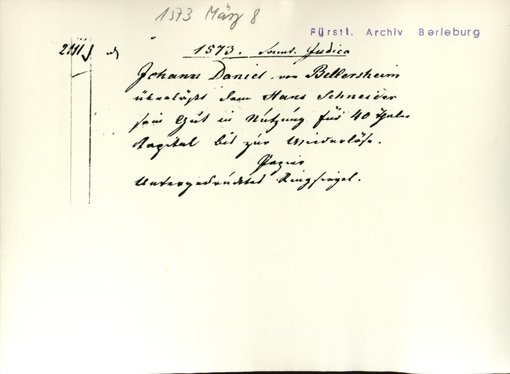 1573 März 8
Fürstl. Archiv Berleburg
1573. Sonnt. Judica
Johann Daniel von Bellersheim
überläßt dem Hans Schneider
sein Gut in Nutzung für 40 Thaler
Kapital bis zur Wiederlöse.
Papier
Untergedrücktes Ringsiegel.